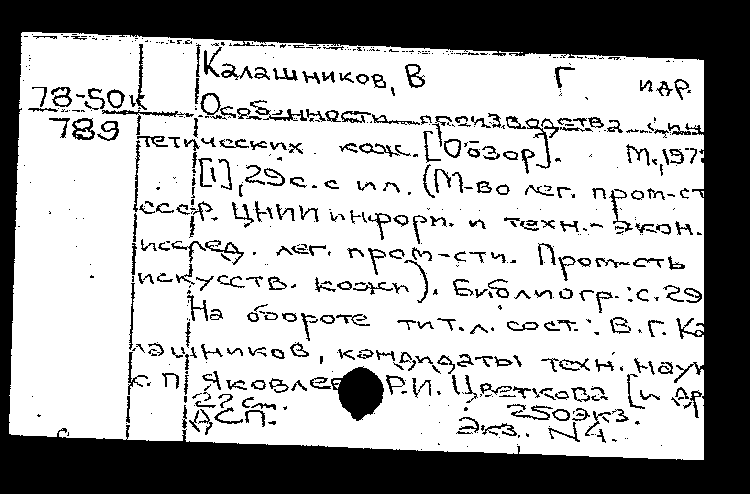 Калашников, В Г идр.
78-50к Особенности производства син
789 тетических кож. [Обзор]. М.,197
[1], 29с. с ил. (М-во лег. пром-ст
СССР. ЦНИИ информ. и техн.-экон.
исслед. лег. пром-сти. Пром-сть
искусств. кожи). Библиогр.: с.29
На обороте тит.л. сост.: В.Г. Ка
лашников, кандидаты техн. наук
с. П Яковлев Р.И. Цветкова [и др
22 см. 250экз.
ДСП. Экз. N4.